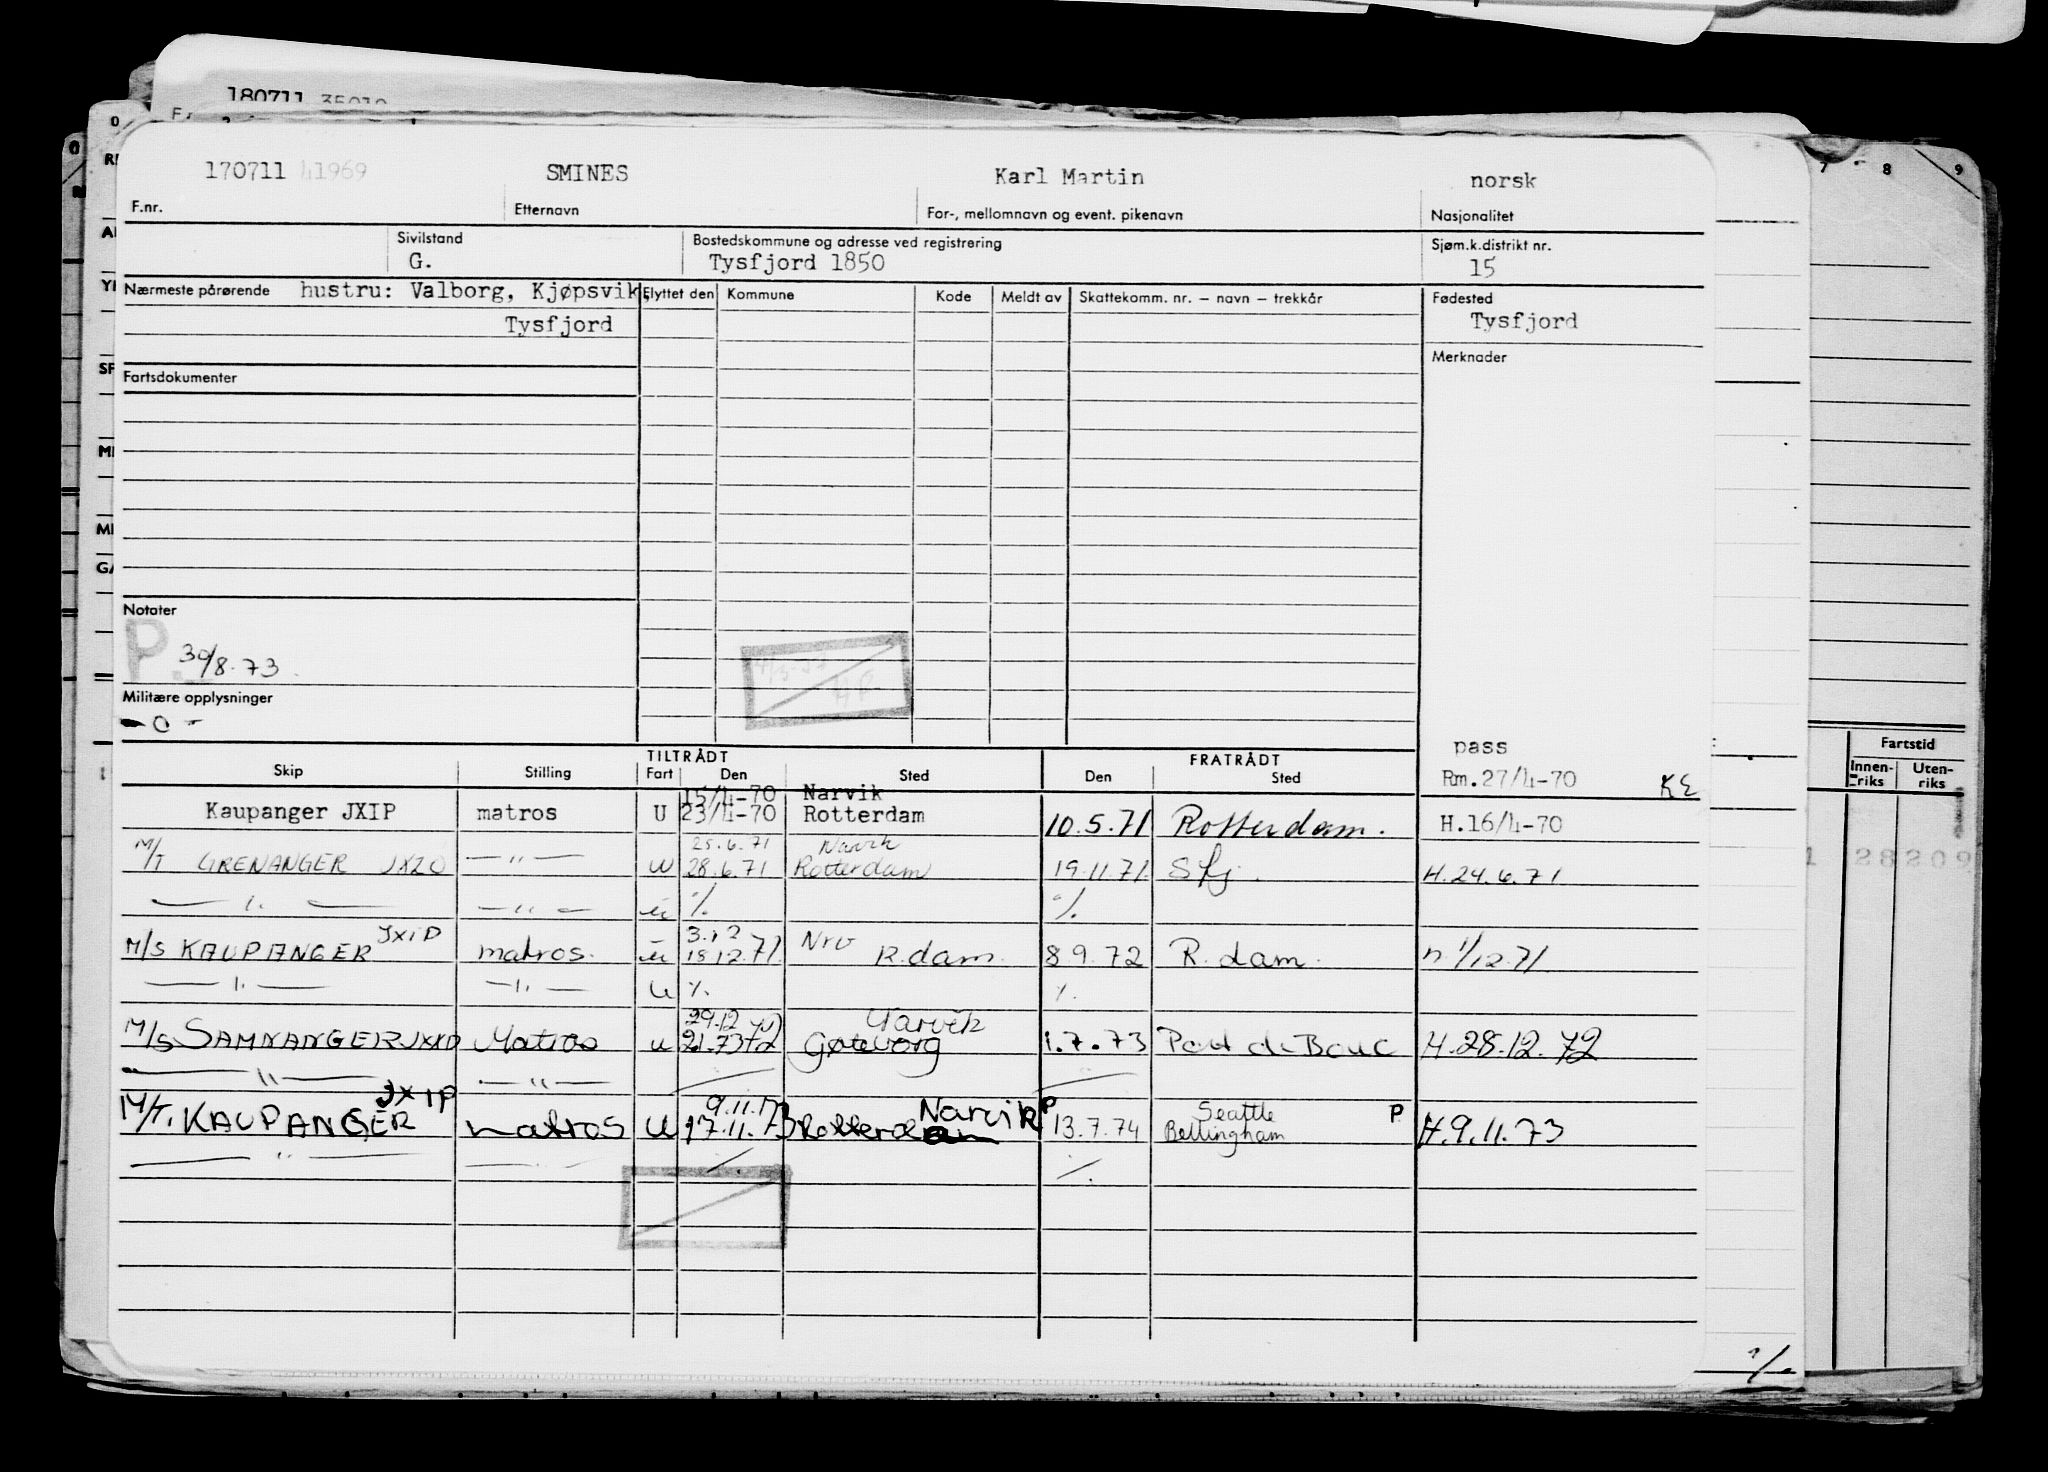 180711 35010
170711 41969 SMINES Karl Martin norsk
F.nr. Etternavn For-, mellomnavn og event. pikenavn Nasjonalitet
Sivilstand Bostedskommune og adresse ved registrering Sjøm.k.distrikt nr.
G. Tysfjord 1850 15
Nærmeste pårørende hustru: Valborg, Kjøpsvik, Flyttet den Kommune Kode Meldt av Skattekomm. nr. – navn – trekkår Fødested
Tysfjord Tysfjord
Merknader
Fartsdokumenter
Notater
P. 30/8-73
Militære opplysninger
- 0 -
TILTRÅDT FRATRÅDT pass
Skip Stilling Fart Den Sted Den Sted Rm.27/4-70 KE
15/4-70 Narvik
Kaupanger JXIP matros U 23/4-70 Rotterdam 10.5.71 Rotterdam. H.16/4-70
25.6.71 Narvik
M/T GRENANGER JXZO — " — U 28.6.71 Rotterdam 19.11.71 Sfj. H.24.6.71
— " — — " — ü ٪ ٪
JXIP 3.12 Nrv
M/S KAUPANGER matros. ü 18.12.71 R.dam. 8 9.72 R. dam. H 1/12.71
— " — — " — U ٪ ٪
29.12 72 Narvik
M/S SAMNANGER JXXD Matros U 2.1.73 Gøteborg 1.7.73 Port de Bouc H.28.12.72
— " — — " —
JXIP 9.11.73 Narvik P Seattle P
M/T. KAUPANGER matros U 17.11.73 Rotterdam 13.7.74 Bellingham H.9.11.73
— " — ٪ ٪
7 8 9
Fartstid
Innenriks Utenriks
1 28209